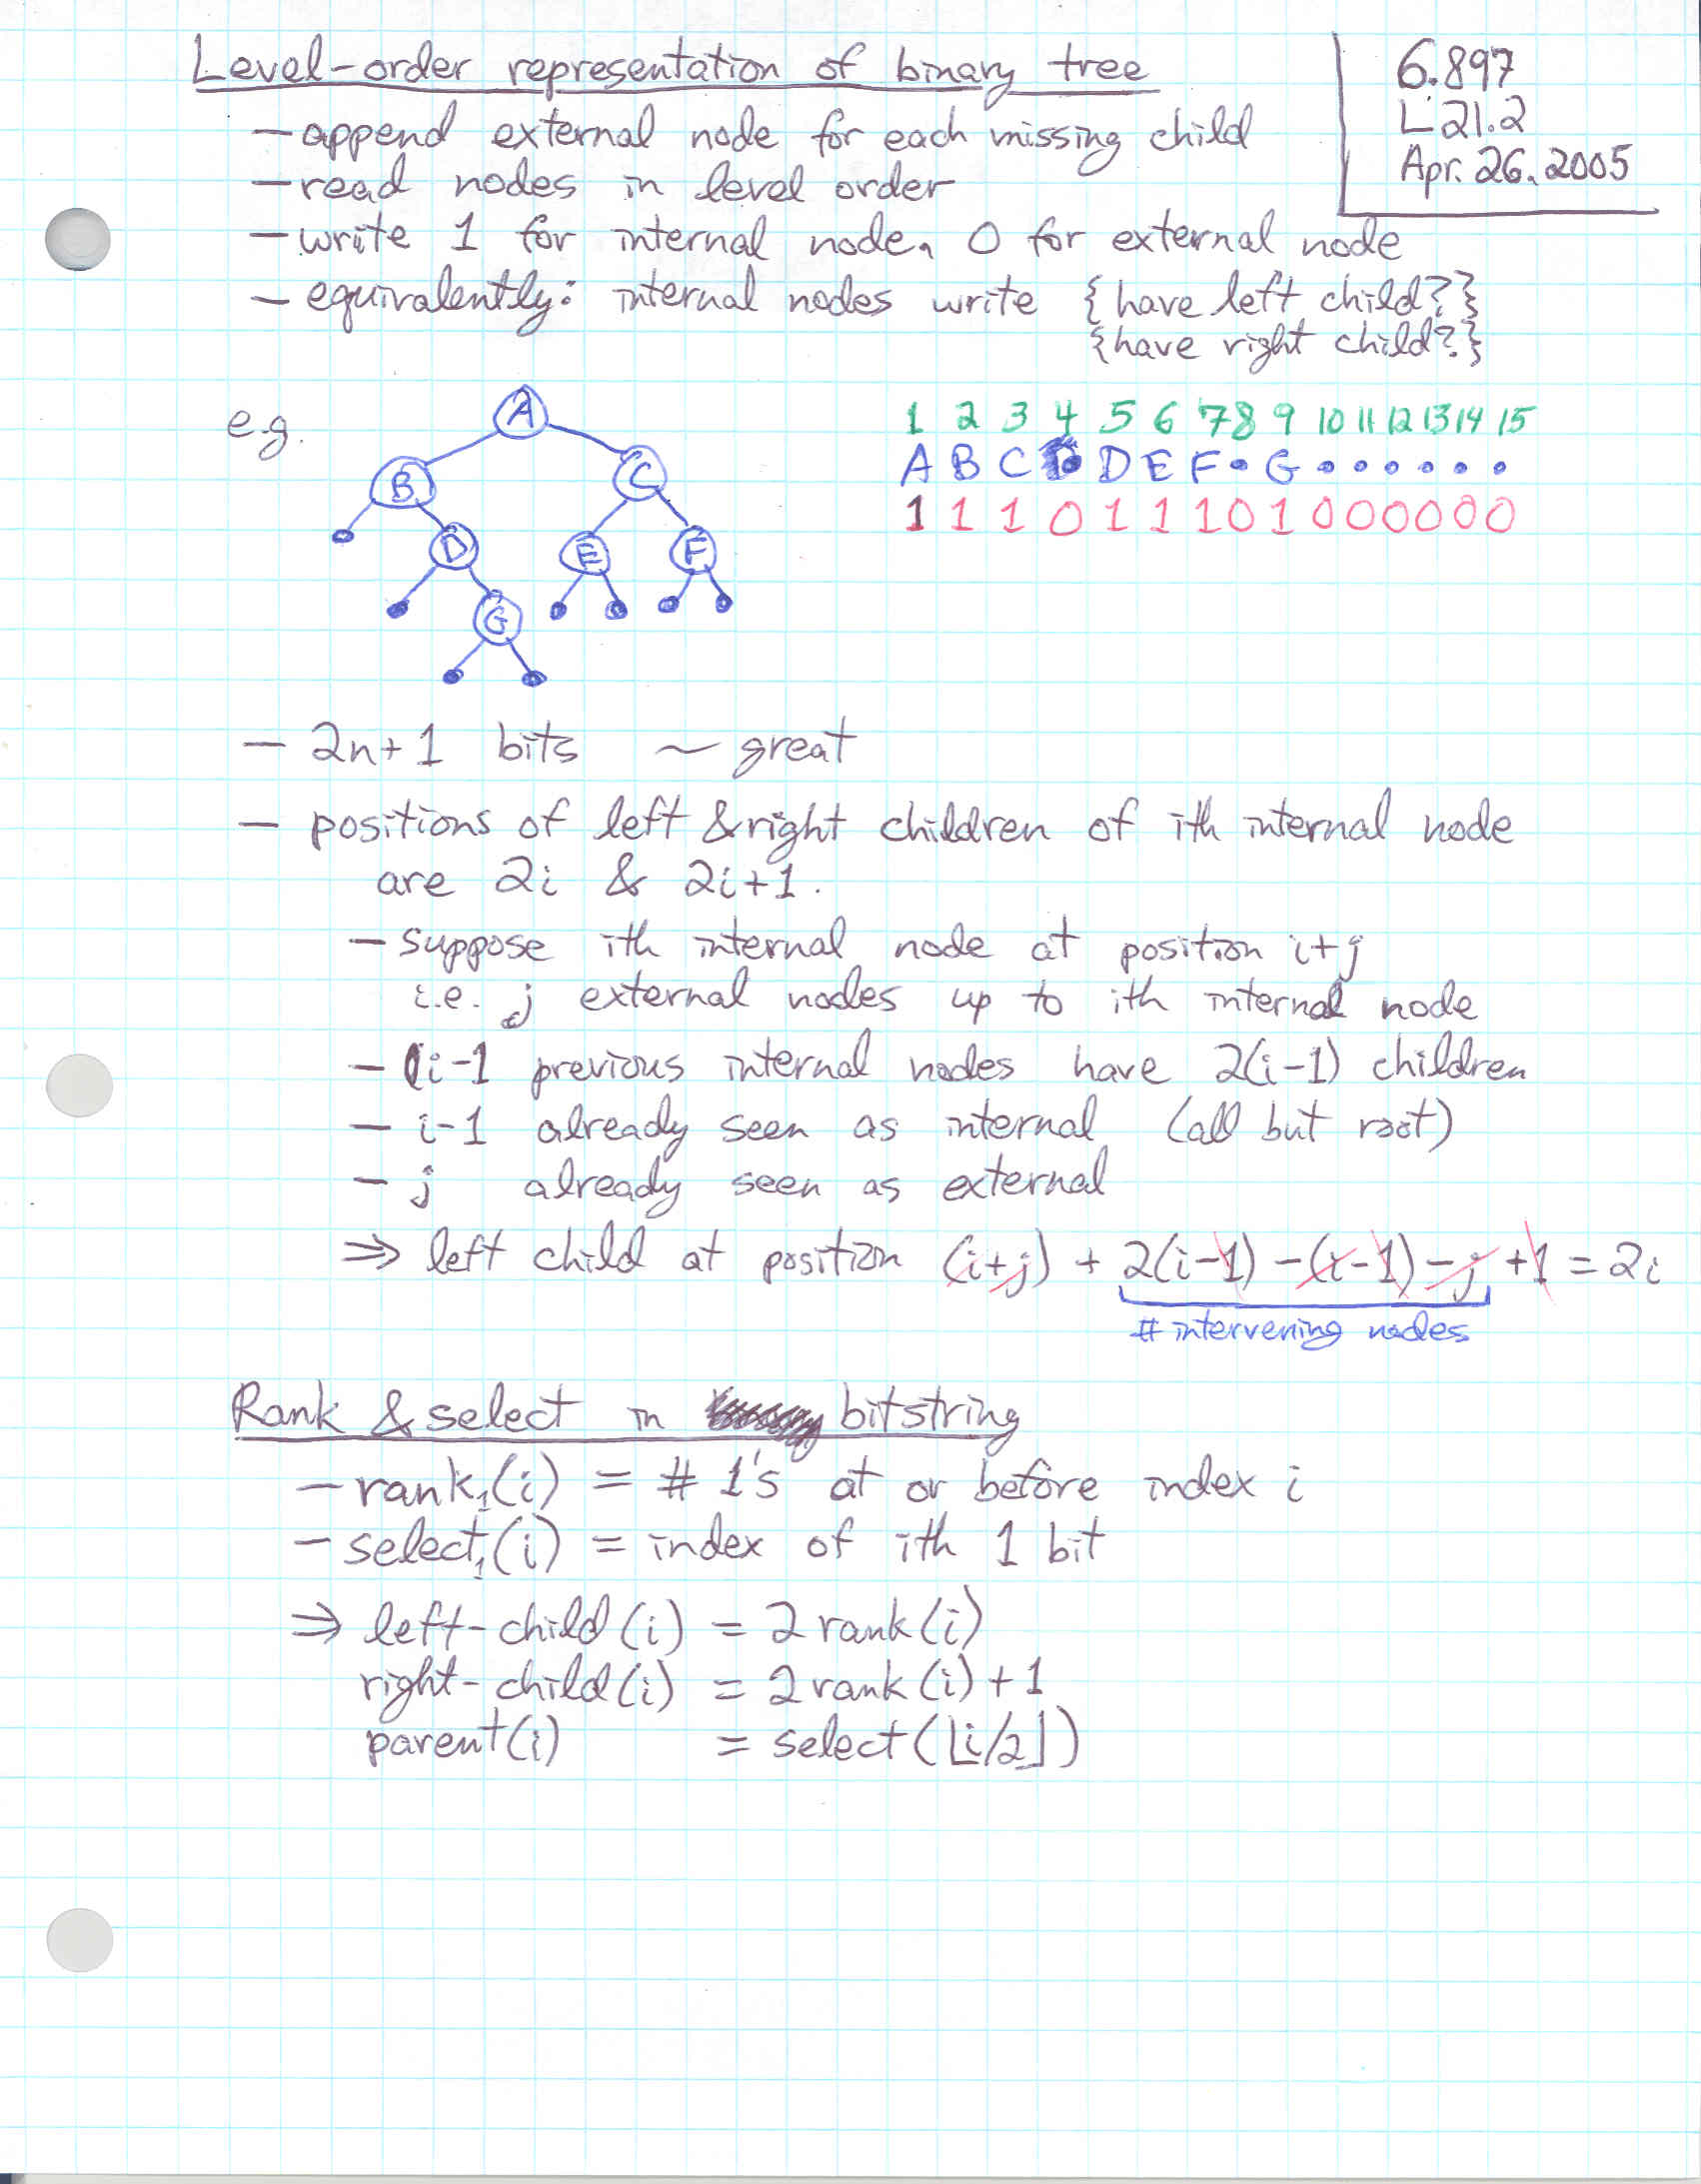 Level-order representation of binary tree
6.897
L21.2
Apr. 26, 2005
– append external node for each missing child
– read nodes in level order
– write 1 for internal node, 0 for external node
– equivalently: internal nodes write {have left child?}
{have right child?}
e.g.
A
B
C
D
E
F
G
1 2 3 4 5 6 7 8 9 10 11 12 13 14 15
A B C • D E F • G • • • • • •
1 1 1 0 1 1 1 0 1 0 0 0 0 0 0
– 2n+1 bits ~ great
– positions of left & right children of ith internal node
are 2i & 2i+1.
– suppose ith internal node at position i+j
i.e. j external nodes up to ith internal node
– i-1 previous internal nodes have 2(i-1) children
– i-1 already seen as internal (all but root)
– j already seen as external
⇒ left child at position (i+j) + 2(i-1) - (i-1) - j + 1 = 2i
# intervening nodes
Rank & select in bitstring
– rank₁(i) = # 1's at or before index i
– select₁(i) = index of ith 1 bit
⇒ left-child(i) = 2 rank(i)
right-child(i) = 2 rank(i) + 1
parent(i) = select(⌊i/2⌋)